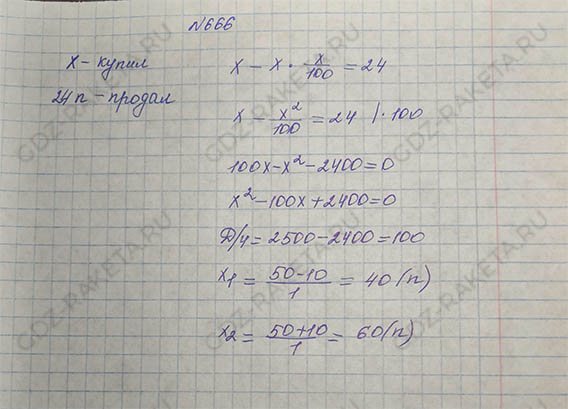 №666
x – купил
24п – продал
x – x · x/100 = 24
x – x²/100 = 24 | · 100
100x – x² – 2400 = 0
x² – 100x + 2400 = 0
Д/4 = 2500 – 2400 = 100
x₁ = (50 – 10)/1 = 40 (п)
x₂ = (50 + 10)/1 = 60 (п)
GDZ-RAKETA.RU